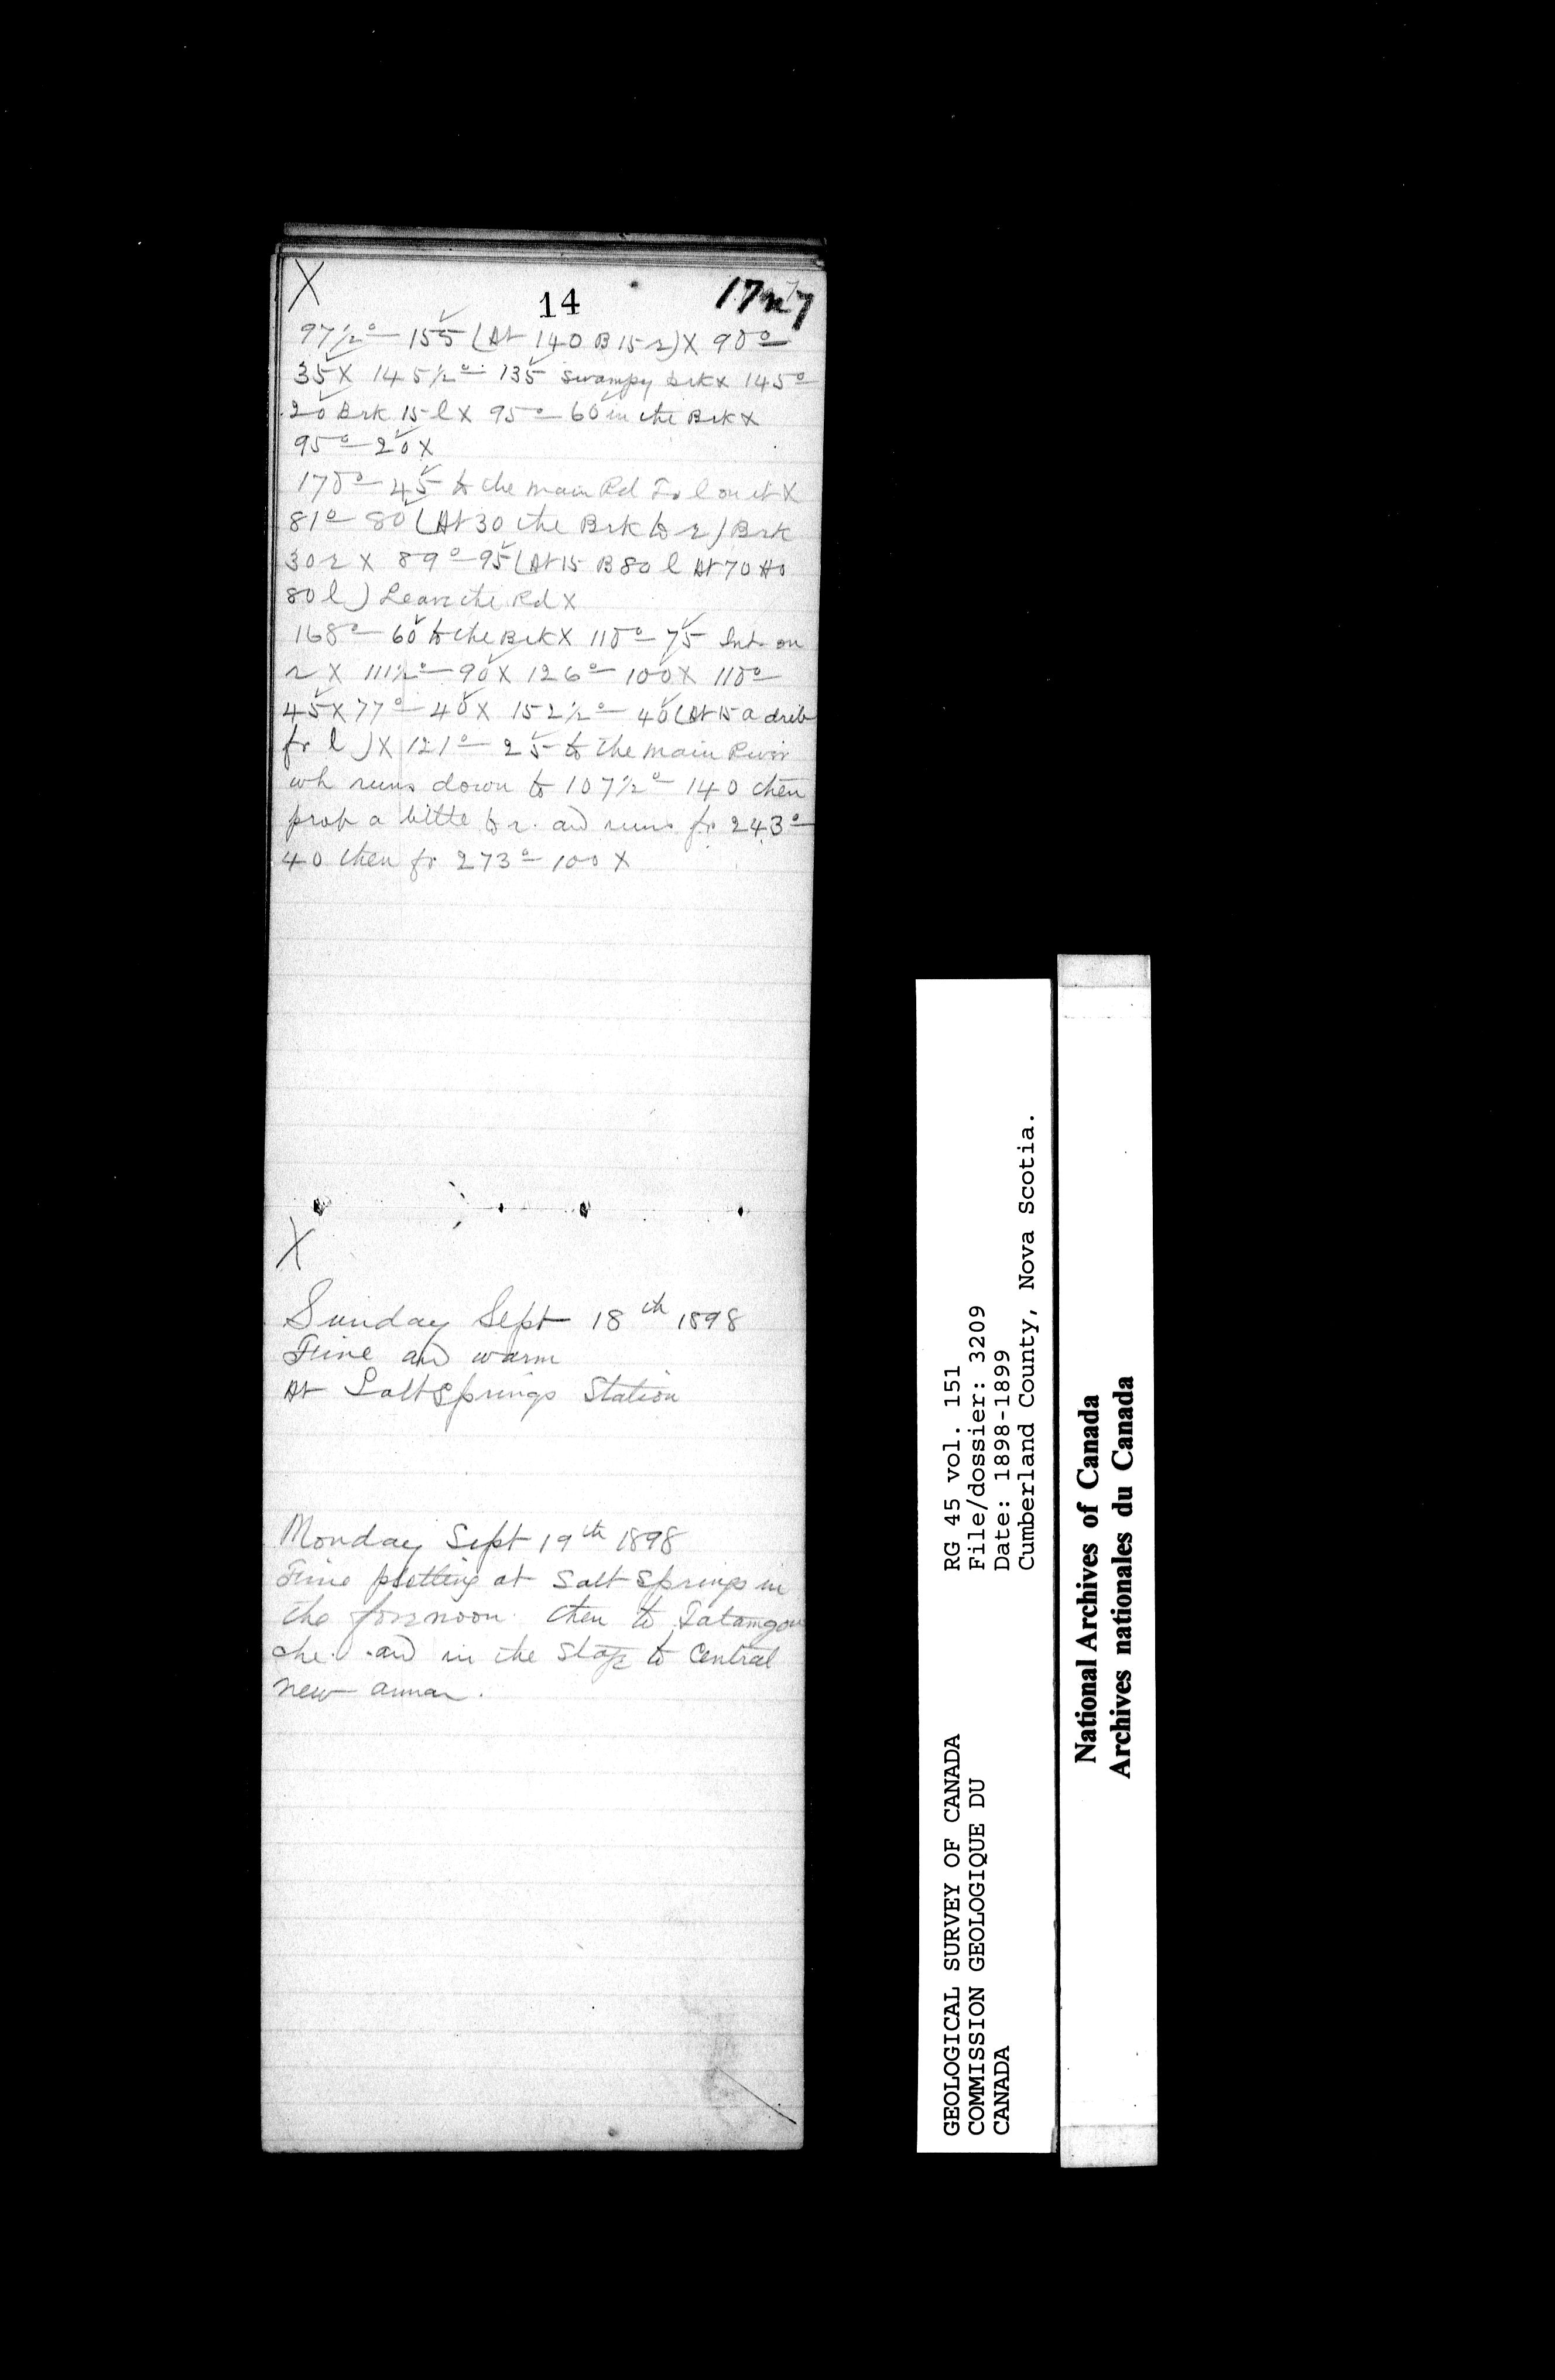 X
14
97½° – 155 (At 140 B 15 r) X 90°
35 X 145½° – 135 swampy brk X 145°
20 Brk 15 l X 95° – 60 in the Brk X
95° – 20 X
170° – 45 to the main Rd To l on it X
81° – 80 (At 30 the Brk to r) Brk
30 r X 89° – 95 (At 15 B 80 l At 70 Ho
80 l) Leave the Rd X
168° – 60 to the Brk X 110° – 75 Int on
r X 111½° – 90 X 126° – 100 X 110°
45 X 77° – 40 X 152½° – 40 (At 15 a drib
fr l) X 121° – 25 to the main River
wh runs down to 107½° – 140 then
prob a little to r. and runs fr 243°
40 then fr 273° – 100 X
X
Sunday Sept 18th 1898
Fine and warm
At Salt Springs Station
Monday Sept 19th 1898
Fine plotting at Salt Springs in
the forenoon then to Tatamgou
che and in the Stage to Central
New annan.
RG 45 vol. 151
File/dossier: 3209
Date: 1898-1899
Cumberland County, Nova Scotia.
GEOLOGICAL SURVEY OF CANADA
COMMISSION GEOLOGIQUE DU
CANADA
National Archives of Canada
Archives nationales du Canada